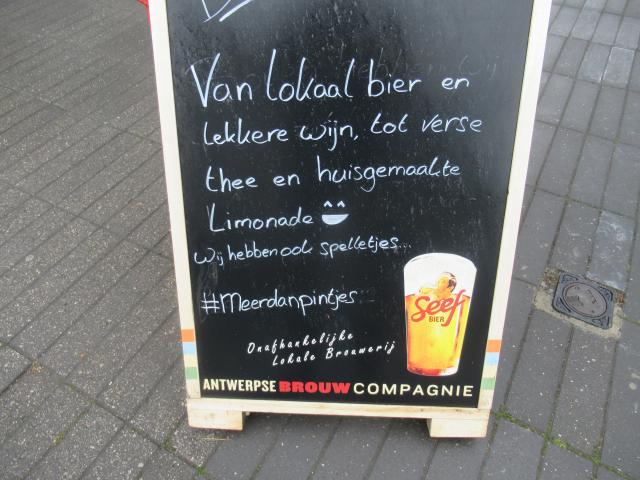 Van lokaal bier en
lekkere wijn, tot verse
thee en huisgemaakte
Limonade
Wij hebben ook spelletjes...
#Meerdanpintjes
Seef
BIER
Onafhankelijke
Lokale Brouwerij
ANTWERPSE BROUW COMPAGNIE